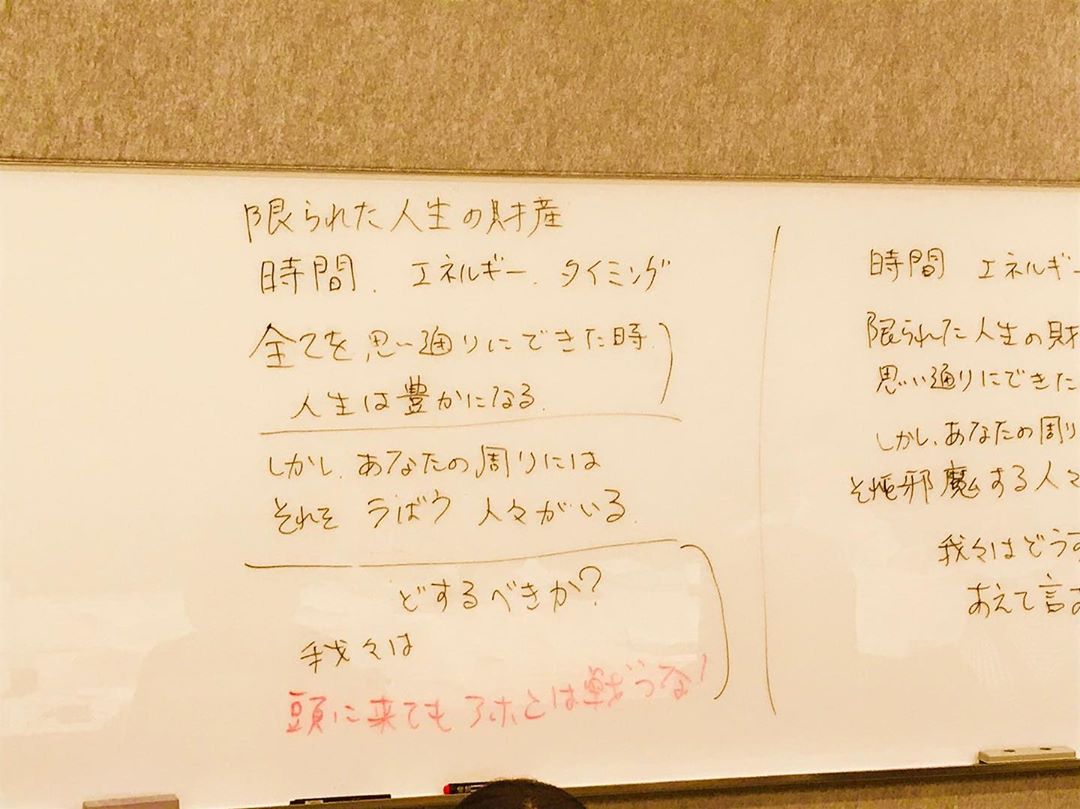 限られた人生の財産
時間、エネルギー、タイミング
全てを思い通りにできた時、
人生は豊かになる。
しかし、あなたの周りには
それを うばう 人々がいる。
どするべきか?
我々は
頭に来てもアホとは戦うな!
時間 エネルギー
限られた人生の財
思い通りにできた
しかし、あなたの周り
それを邪魔する人々
我々はどうす
あえて言お